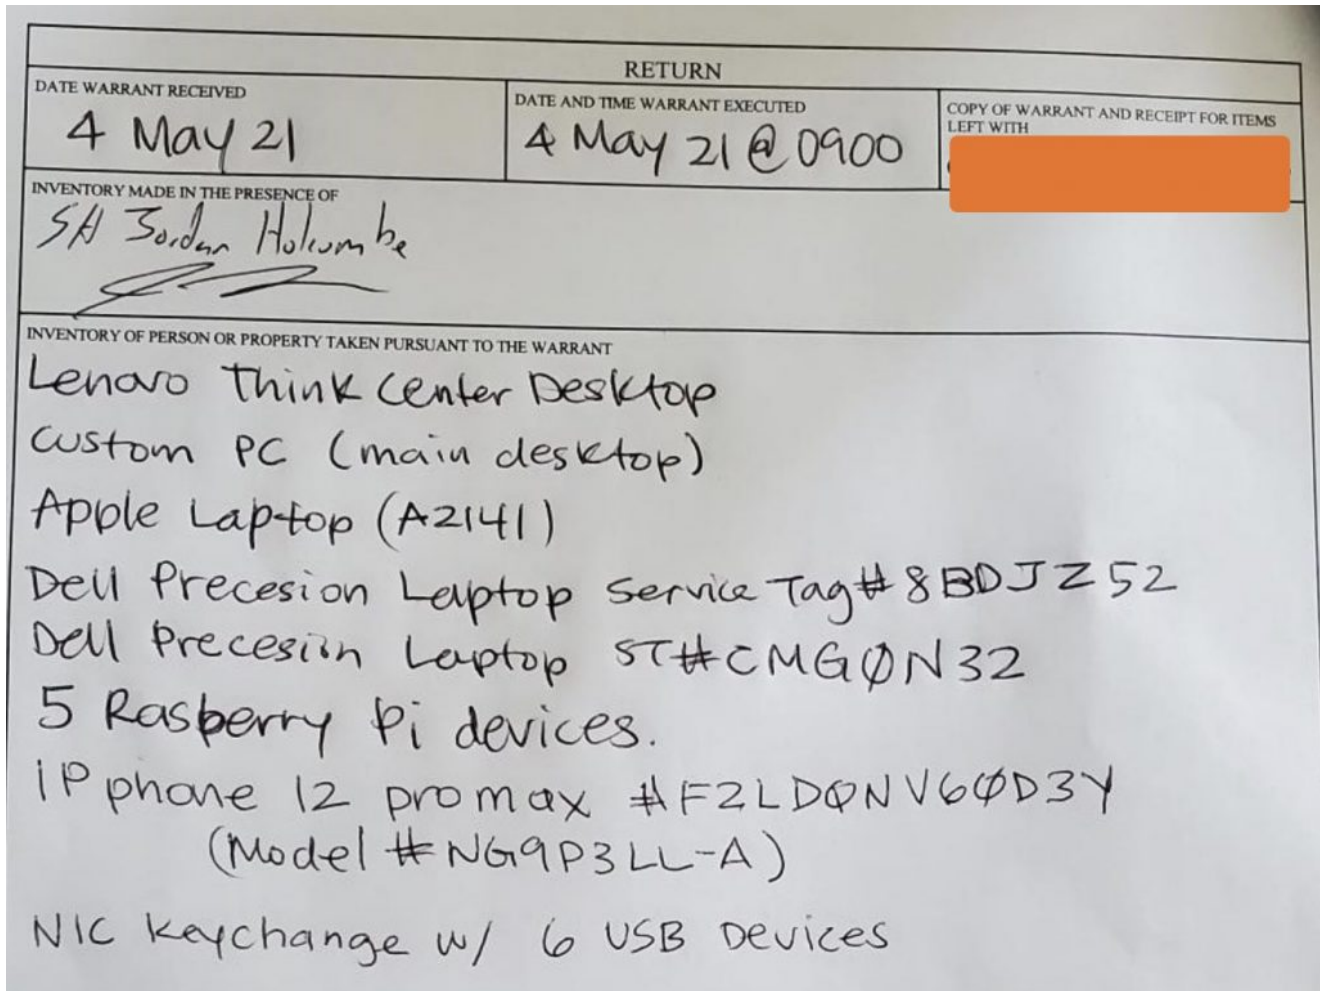 RETURN
DATE WARRANT RECEIVED
4 May 21
DATE AND TIME WARRANT EXECUTED
4 May 21 @ 0900
COPY OF WARRANT AND RECEIPT FOR ITEMS
LEFT WITH
INVENTORY MADE IN THE PRESENCE OF
SA Jordan Holcombe
INVENTORY OF PERSON OR PROPERTY TAKEN PURSUANT TO THE WARRANT
Lenovo Think Center Desktop
Custom PC (main desktop)
Apple Laptop (A2141)
Dell Precesion Laptop Service Tag# 8BDJZ52
Dell Precesion Laptop ST#CMGØN32
5 Rasberry Pi devices.
iPphone 12 promax #F2LDØNV6ØD3Y
(Model #NG9P3LL-A)
NIC Keychange w/ 6 USB Devices